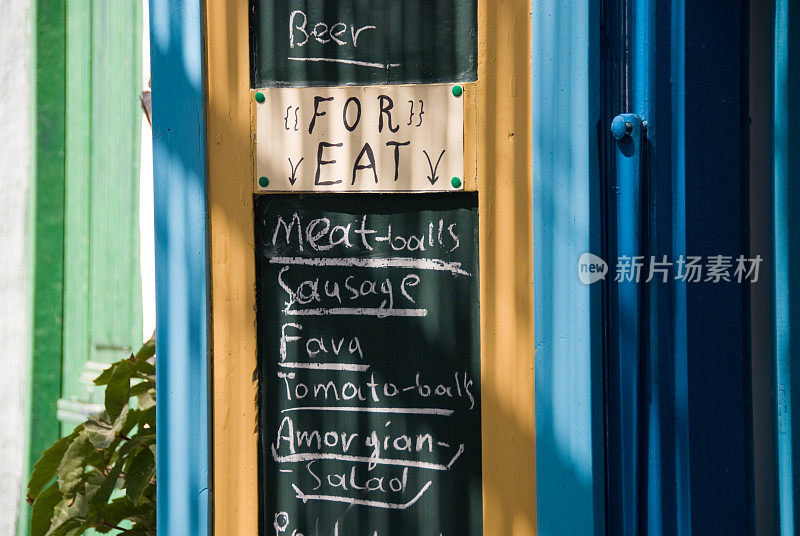 Beer
{{ FOR }}
EAT
Meat-balls
Sausage
Fava
Tomato-balls
Amorgian-
Salad
new 新片素材